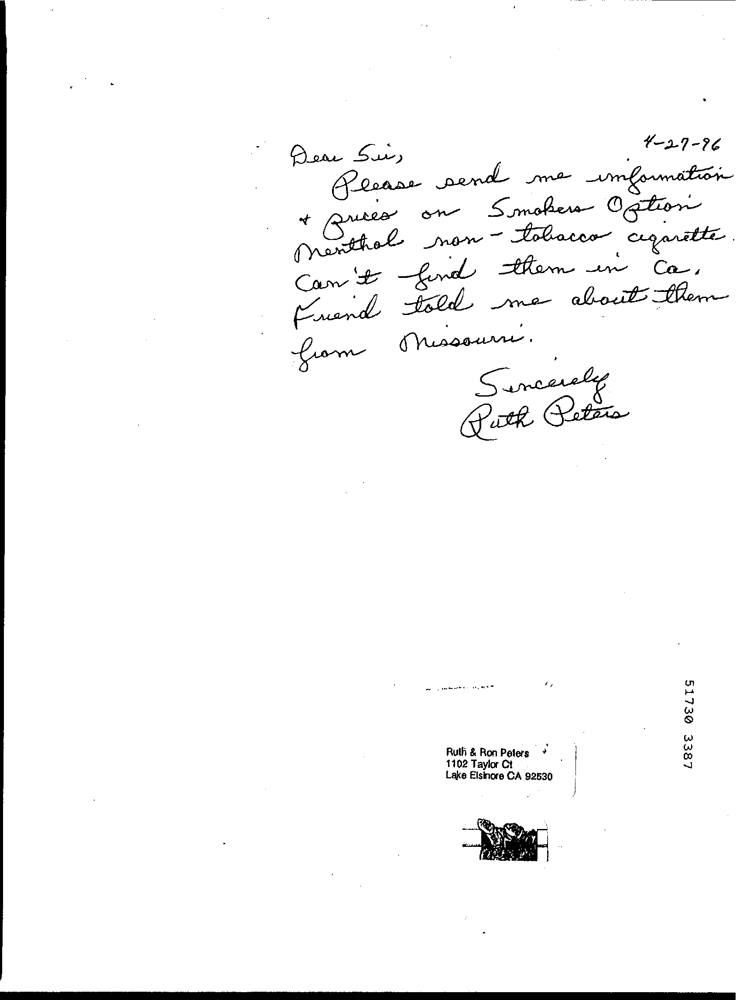 4-27-96
Dear Sir,
Please send me information
+ prices on Smokers Option
Menthol non-tobacco cigarette.
Can't find them in Ca.
Friend told me about them
from Missouri.
Sincerely
Ruth Peters
51730 3387
Ruth & Ron Peters
1102 Taylor Ct
Lake Elsinore CA 92530